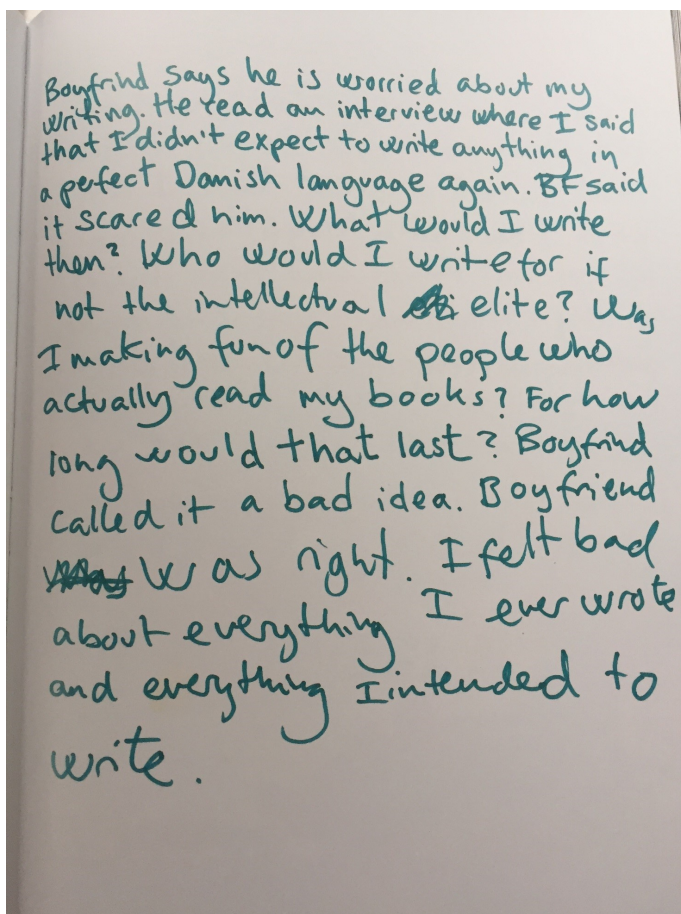 Boyfrind says he is worried about my
writing. He read an interview where I said
that I didn't expect to write anything in
a perfect Danish language again. BF said
it scared him. What would I write
then? Who would I write for if
not the intellectual elite? Was
I making fun of the people who
actually read my books? For how
long would that last? Boyfrind
called it a bad idea. Boyfriend
was right. I felt bad
about everything I ever wrote
and everything I intended to
write.